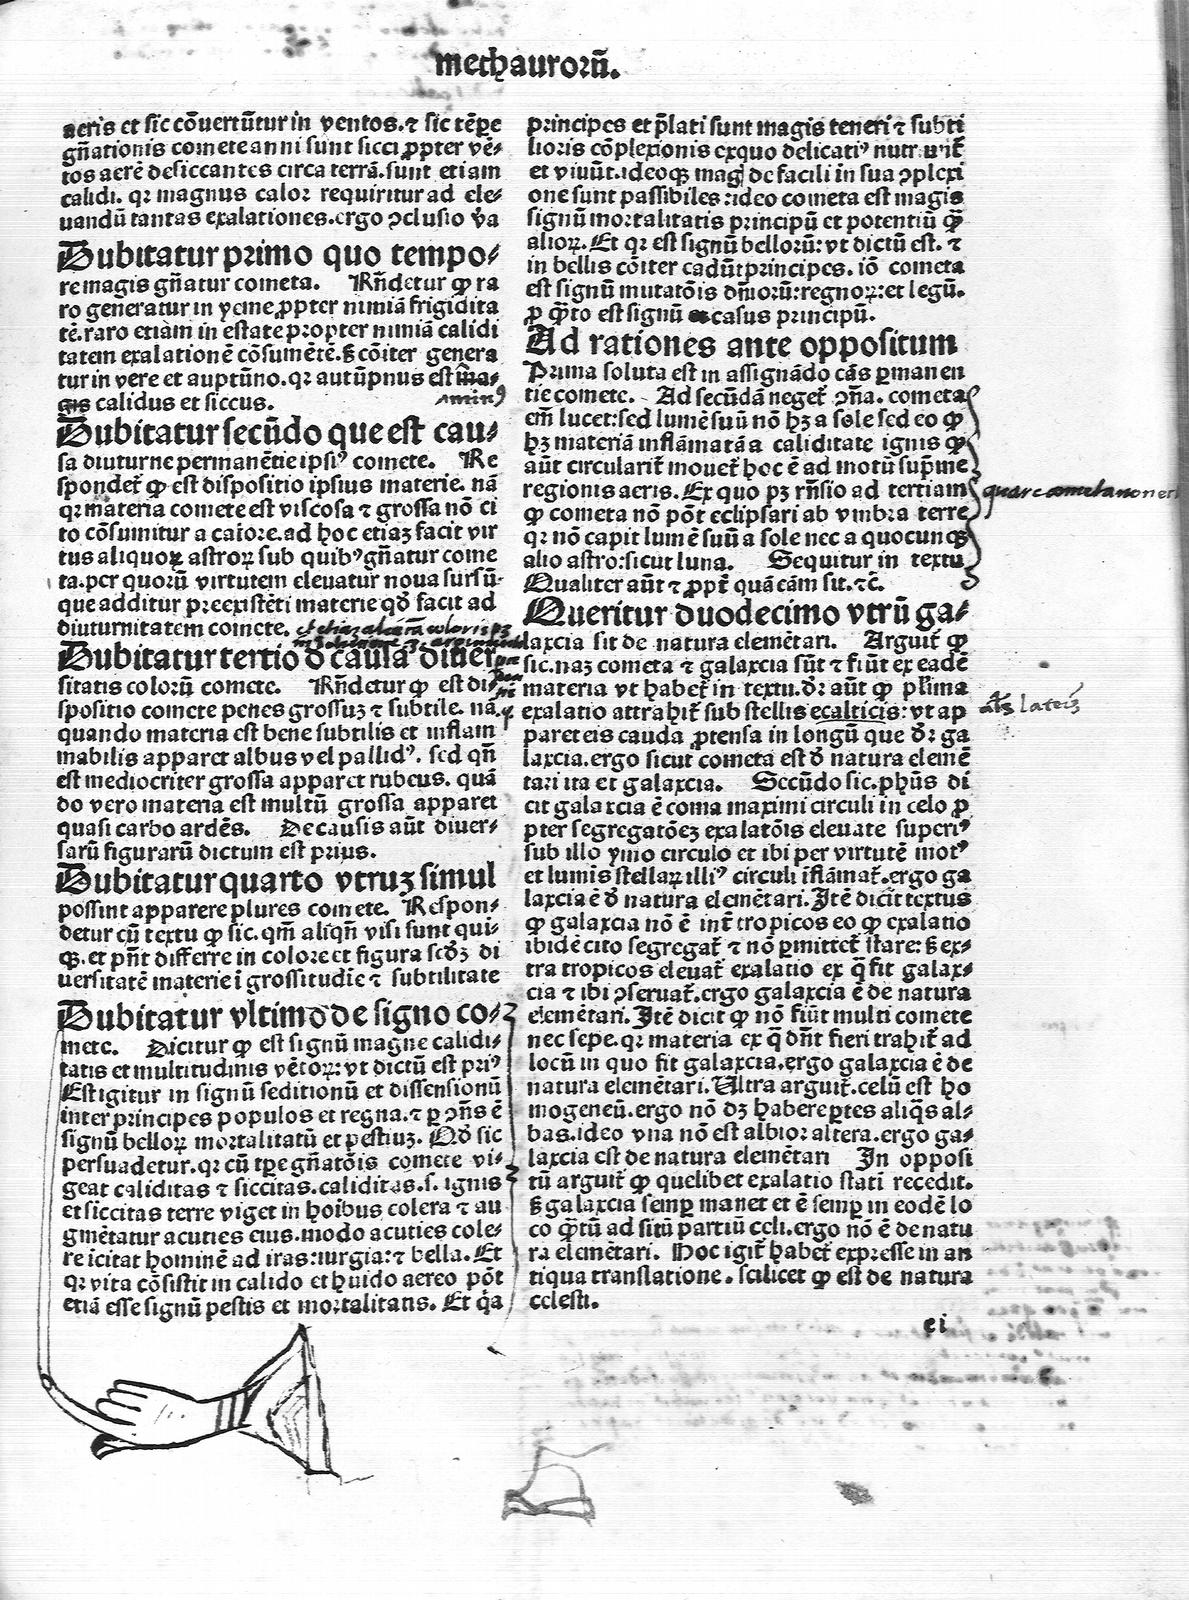 mechaurorū.
aeris et sic cōuertūtur in ventos.⁊ sic tēpe
gn̄ationis comete anni sunt sicci ꝓpter vē⸗
tos aerē desiccantes circa terrā.sunt etiam
calidi. qꝛ magnus calor requiritur ad ele⸗
uandū tantas exalationes.ergo ↄclusio v̄a
Dubitatur primo quo tempo⸗
re magis gn̄atur cometa. Rn̄detur ꝙ ra
ro generatur in yeme ꝓpter nimiā frigidita
tē.raro etiam in estate propter nimiā calidi
tatem exalationē cōsumētē.ꝫ cōiter genera
tur in vere et auptūno.qꝛ autūpnus est
calidus et siccus.
Dubitatur secūdo que est cau⸗
sa diuturne permanētie ipsiꝰ comete. Re
spondet̄ ꝙ est dispositio ipsius materie. nā
qꝛ materia comete est viscosa ⁊ grossa nō ci
to cōsumitur a calore.ad hoc etiaꝫ facit vir
tus aliquoꝝ astroꝝ sub quibꝰ gn̄atur come
ta.per quorū virtutem eleuatur noua sursū
que additur preexistēti materie qđ facit ad
diuturnitatem comete.
Dubitatur tertio đ causa diuer
sitatis colorū comete. Rn̄detur ꝙ est di⸗
spositio comete penes grossuꝫ ⁊ subtile. nā
quando materia est bene subtilis et inflam
mabilis apparet albus vel pallidꝰ. sed qn̄
est mediocriter grossa apparet rubeus. quā
do vero materia est multū grossa apparet
quasi carbo ardēs. De causis aūt diuer⸗
sarū figurarū dictum est prius.
Dubitatur quarto vtruꝫ simul
possint apparere plures comete. Respon⸗
detur cū textu ꝙ sic. qm̄ aliqn̄ visi sunt qui⸗
ꝗ. et pn̄t differre in colore et figura scđꝫ di
uersitatē materie ī grossitudīe ⁊ subtilitate
Dubitatur vltimo de signo co⸗
mete. Dicitur ꝙ est signū magne calidi⸗
tatis et multitudinis vētoꝝ: vt dictū est priꝰ
Est igitur in signū seditionū et dissensionū
inter principes populos et regna.⁊ ꝑ ↄn̄s ē
signū belloꝝ mortalitatū et pestiuꝫ. Qđ sic
persuadetur.qꝛ cū tꝑe gn̄atōis comete vi⸗
geat caliditas ⁊ siccitas.caliditas.s. ignis
et siccitas terre viget in hoibus colera ⁊ au
gmētatur acuties eius.modo acuties cole⸗
re īcitat hominē ad iras:iurgia:⁊ bella. Et
qꝛ vita cōsistit in calido et huido aereo pōt
etiā esse signū pestis et mortalitatis. Et q̄a
principes et p̄lati sunt magis teneri ⁊ subti
lioris cōplexionis exquo delicatiꝰ nutriūt̄
et viuūt.ideoqꝫ mag de facili in sua ↄplexi
one sunt passibiles:ideo cometa est magis
signū mortalitatis principū et potentiū ꝙ̄
alioꝝ. Et qꝛ est signū bellorū: vt dictū est. ⁊
in bellis cōiter cadūt principes. iō cometa
est signū mutatōis dn̄iorū:regnoꝝ:et legū.
ꝑ ꝙ̄to est signū casus principū.
Ad rationes ante oppositum
Prima soluta est in assignādo cās ꝑmanen
tie comete. Ad secūdā neget̄ ↄn̄a. cometa
em̄ lucet:sed lumē suū nō hꝫ a sole sed eo ꝙ
hꝫ materiā inflāmatā a caliditate ignis ꝙ
aūt circularit̄ mouet̄ hoc ē ad motū sup̄me
regionis aeris. Ex quo pꝫ rn̄sio ad tertiam
ꝙ cometa nō pōt eclipsari ab vmbra terre
qꝛ nō capit lumē suū a sole nec a quocunqꝫ
alio astro:sicut luna. Sequitur in textu
Qualiter aūt ⁊ ꝓpt̄ quā cām sit. ⁊c̄.
quare cometa non ecl
Queritur duodecimo vtrū ga⸗
laxcia sit de natura elemētari. Arguit̄ ꝙ
sic.naꝫ cometa ⁊ galaxcia sūt ⁊ fiūt ex eadē
materia vt habet̄ in textu.đꝛ aūt ꝙ p̄ lima
exalatio attrahit̄ sub stellis ecalticis: vt ap
paret eis cauda ꝓtensa in longū que đꝛ ga
laxcia.ergo sicut cometa est đ natura elemē
tari ita et galaxcia. Secūdo sic.phūs di
cit galaxcia ē coma maximi circuli in celo ꝓ
pter segregatōeꝫ exalatōis eleuate superiꝰ
sub illo ymo circulo et ibi per virtutē motꝰ
et lumīs stellaꝝ illiꝰ circuli īflāmat̄.ergo ga
laxcia ē đ natura elemētari. Itē dicit textus
ꝙ galaxcia nō ē int̄ tropicos eo ꝙ exalatio
ibidē cito segregat̄ ⁊ nō ꝑmittet̄ stare: ꝫ ex⸗
tra tropicos eleuat̄ exalatio ex q̄ fit galax⸗
cia ⁊ ibi ↄseruat̄.ergo galaxcia ē de natura
elemētari. Itē dicit ꝙ nō fiūt multi comete
nec sepe.qꝛ materia ex q̄ dn̄t fieri trahit̄ ad
locū in quo fit galaxcia.ergo galaxcia ē de
natura elemētari. Ultra arguit̄.celū est ho
mogeneū.ergo nō dꝫ habere ꝑtes aliq̄s al⸗
bas.ideo vna nō est albior altera.ergo ga⸗
laxcia est de natura elemētari In opposi
tū arguit̄ ꝙ quelibet exalatio stati recedit.
ꝫ galaxcia semꝑ manet et ē semꝑ in eodē lo
co ꝙ̄tū ad sitū partiū celi.ergo nō ē de natu
ra elemētari. Hoc igit̄ habet̄ expresse in an
tiqua translatione. scilicet ꝙ est de natura
celesti.
ei